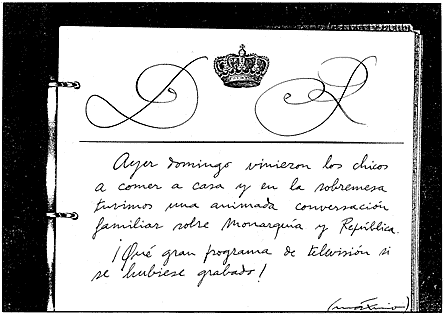 D R
Ayer domingo vinieron los chicos
a comer a casa y en la sobremesa
tuvimos una animada conversación
familiar sobre Monarquía y República.
¡Qué gran programa de televisión si
se hubiese grabado!
(máximo)